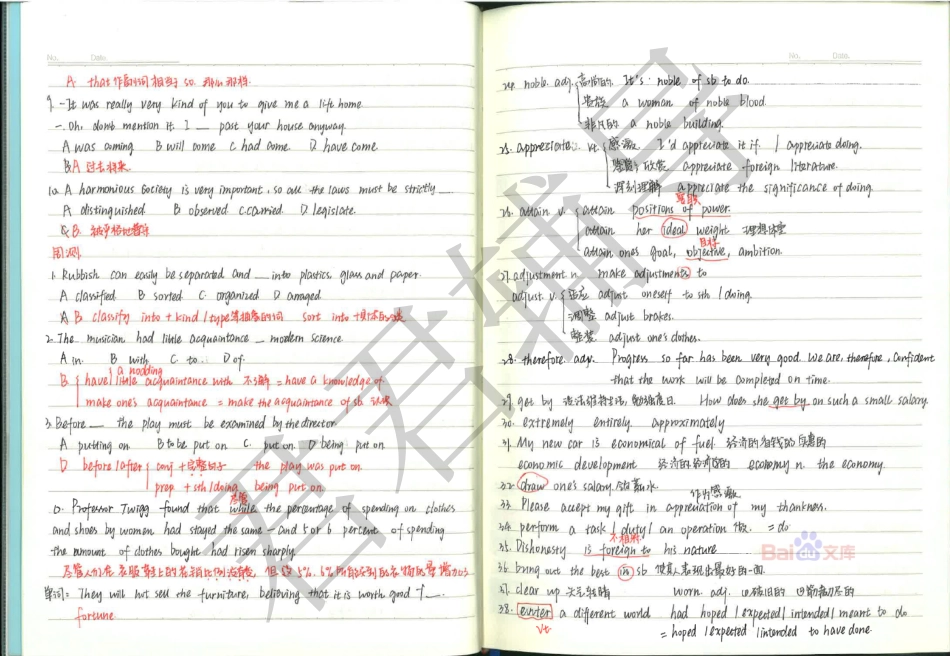 No. Date.
A that作副词相当于so. 那么那样.
9. -It was really very kind of you to give me a lift home
-Oh, don't mention it. I ___ past your house anyway.
A was coming B will come C had come D have come
A 过去将来
10. A harmonious society is very important, so all the laws must be strictly ___.
A distinguished B observed C. carried D. legislate.
B
周测
1. Rubbish can easily be separated and ___ into plastics, glass and paper.
A classified B sorted C. organized D arraged
B classify into + kind / type等 sort into +
2. The musician had little acquaintance ___ modern science
A in. B with C. to. D of.
a nodding
B have / little acquaintance with 不了解 = have a knowledge of
make one's acquaintance = make the acquaintance of sb 认识
3. Before ___ the play must be examined by the director
A putting on B to be put on C. put on. D being put on
D before/after conj + 完整句子 the play was put on
prep + sth/doing being put on.
尽管
D. Professor Twigg found that while the percentage of spending on clothes
and shoes by women had stayed the same - and 5 or 6 percent of spending
the amount of clothes bought had risen sharply
尽管人们在衣服鞋上的花销比例没变, 但
单词: They will not sell the furniture, believing that it is worth good f___.
fortune
No. Date.
24. noble adj. 高尚的. It's noble of sb to do.
贵族 a woman of noble blood.
非凡的 a noble building.
25. appreciate: vt. 感激 I'd appreciate it if / appreciate doing.
欣赏 appreciate foreign literature.
深刻理解 appreciate the significance of doing.
26. attain v. attain positions of power.
attain her ideal weight 理想体重
目标
attain one's goal, objective, ambition.
27. adjustment n. make adjustments to
adjust v. 适应 adjust oneself to sth / doing.
调整 adjust brakes.
整装 adjust one's clothes.
28. therefore adv. Progress so far has been very good. We are, therefore, confident
that the work will be completed on time.
29. get by 勉强度日. How does she get by on such a small salary.
30. extremely entirely approximately
31. My new car is economical of fuel. 经济的省钱的
economic development 经济的 economy n. the economy.
32. draw one's salary. 领薪水.
作为感激
33. Please accept my gift in appreciation of my thankness.
34. perform a task / duty / an operation 做. = do
不相称
35. Dishonesty is foreign to his nature
36. bring out the best in sb 使某人表现出最好的一面.
37. clear up 天气转晴 worn adj. ①破旧的 ②筋疲力尽的
38. enter a different world had hoped / expected / intended / meant to do
vt = hoped / expected / intended to have done.
君君辅导
Baidu文库